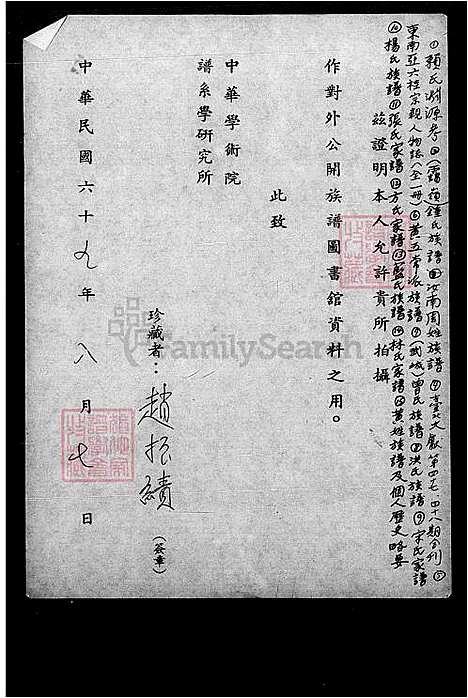 ①賴氏淵源考②(霞葛)鍾氏族譜③汝南周姓族譜④臺北文獻第四七、四十八期合刊⑤
東南亞六桂宗親人物誌(全一冊)⑥黃五常派族譜⑦(武城)曾氏族譜⑧洪氏族譜⑨宋氏家譜
⑩楊氏族譜⑪張氏家譜⑫方氏家譜⑬藍氏族譜⑭林氏家譜⑮黃姓族譜及個人歷史略要
茲證明本人允許貴所拍攝
作對外公開族譜圖書館資料之用。
此致
中華學術院
譜系學研究所
珍藏者：趙振績(簽章)
中華民國六十九年八月七日
FamilySearch